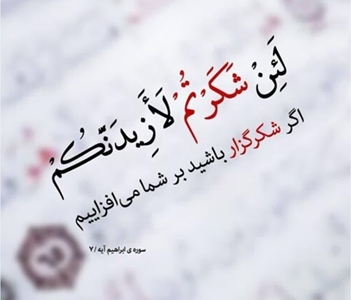 لَئِنْ شَكَرْتُمْ لَأَزِيدَنَّكُمْ
اگر شکرگزار باشید بر شما می‌افزاییم
سوره ی ابراهیم آیه /۷